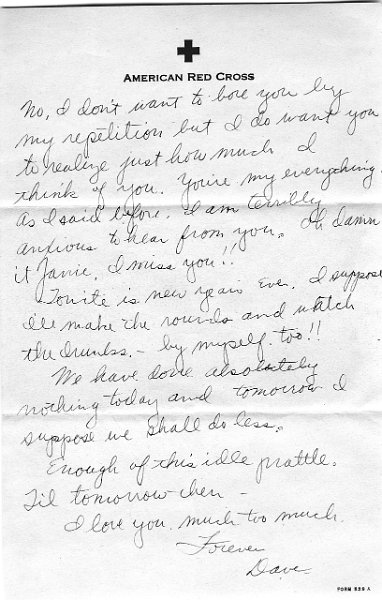 AMERICAN RED CROSS
No, I don't want to bore you by
my repetition but I do want you
to realize just how much I
think of you. You're my everything.
As I said before, I am terribly
anxious to hear from you. Oh damn
it Janie, I miss you!!
Tonite is new years Eve. I suppose
I'll make the rounds and watch
the drunks. - by myself too!!
We have done absolutely
nothing today and tomorrow I
suppose we shall do less.
Enough of this idle prattle.
Til tomorrow then -
I love you much too much.
Forever
Dave
FORM 539 A